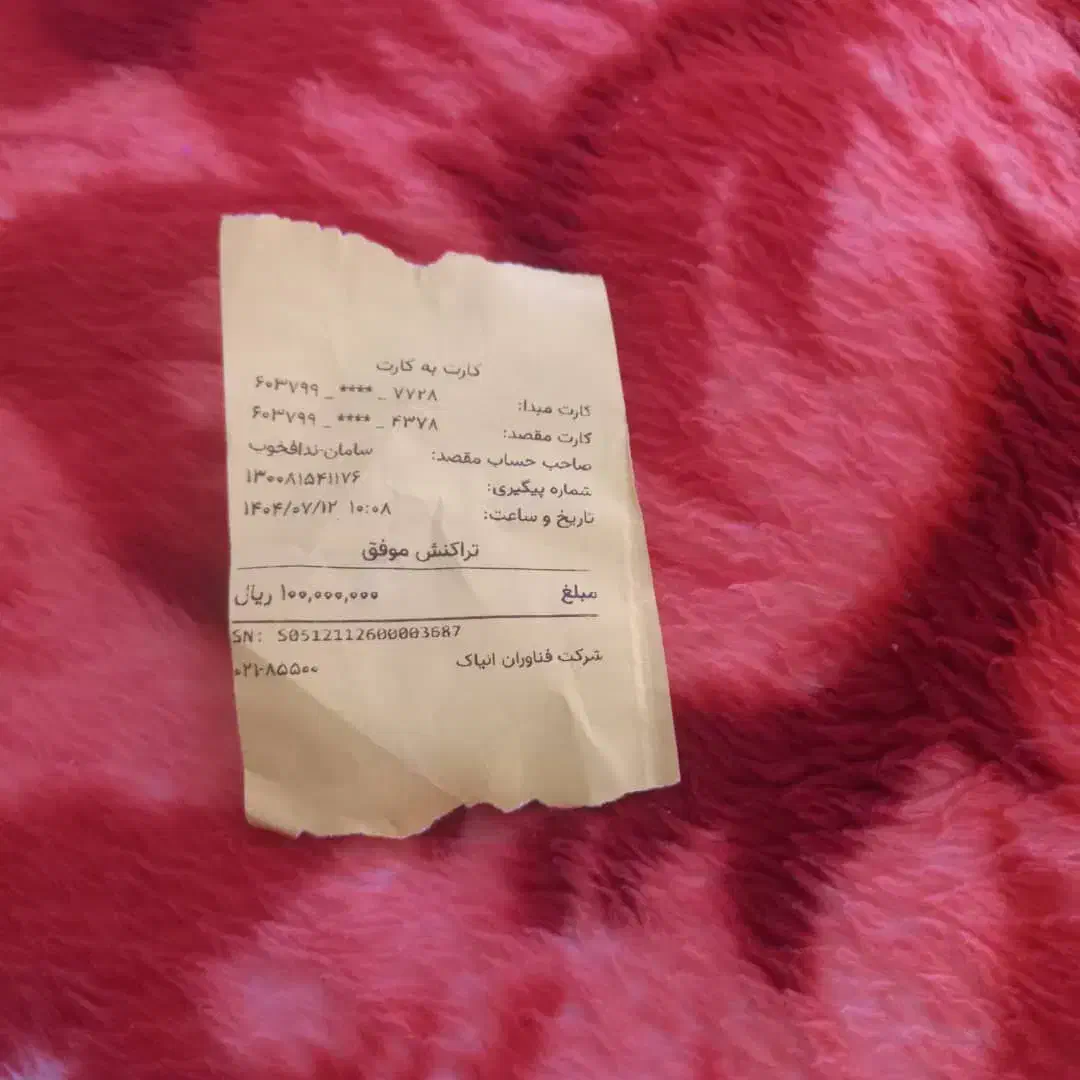 کارت به کارت
کارت مبدا: ۶۰۳۷۹۹ _ **** _ ۷۷۲۸
کارت مقصد: ۶۰۳۷۹۹ _ **** _ ۴۳۷۸
صاحب حساب مقصد: سامان-ندافخوب
شماره پیگیری: ۱۳۰۰۸۱۵۴۱۱۷۶
تاریخ و ساعت: ۱۴۰۴/۰۷/۱۲ ۱۰:۰۸
تراکنش موفق
مبلغ ۱۰۰,۰۰۰,۰۰۰ ریال
SN: S0512112600003687
شرکت فناوران انیاک ۰۲۱-۸۵۵۰۰